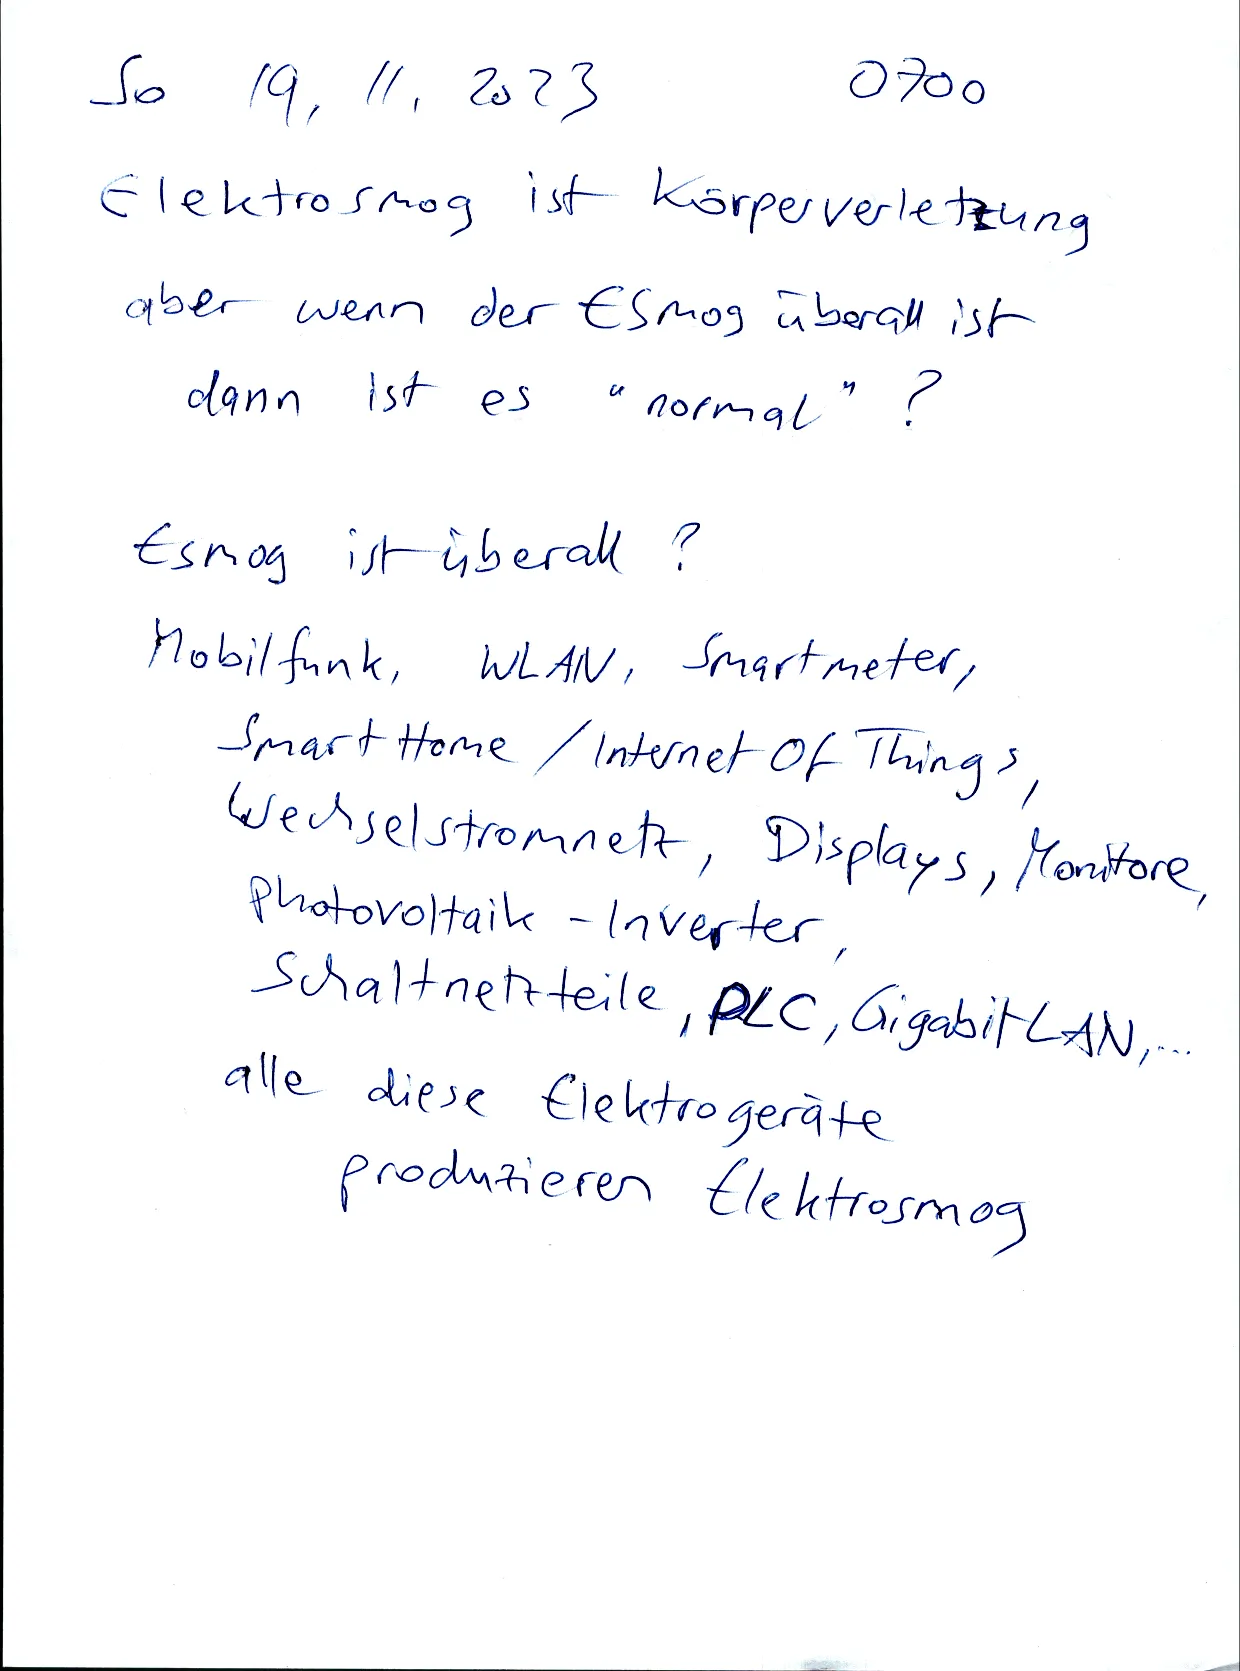 So 19. 11. 2023 0700
Elektrosmog ist Körperverletzung
aber wenn der ESmog überall ist
dann ist es "normal" ?
Esmog ist überall ?
Mobilfunk, WLAN, Smartmeter,
Smart Home / Internet Of Things,
Wechselstromnetz, Displays, Monitore,
Photovoltaik - Inverter,
Schaltnetzteile, PLC, Gigabit LAN, ...
alle diese Elektrogeräte
produzieren Elektrosmog